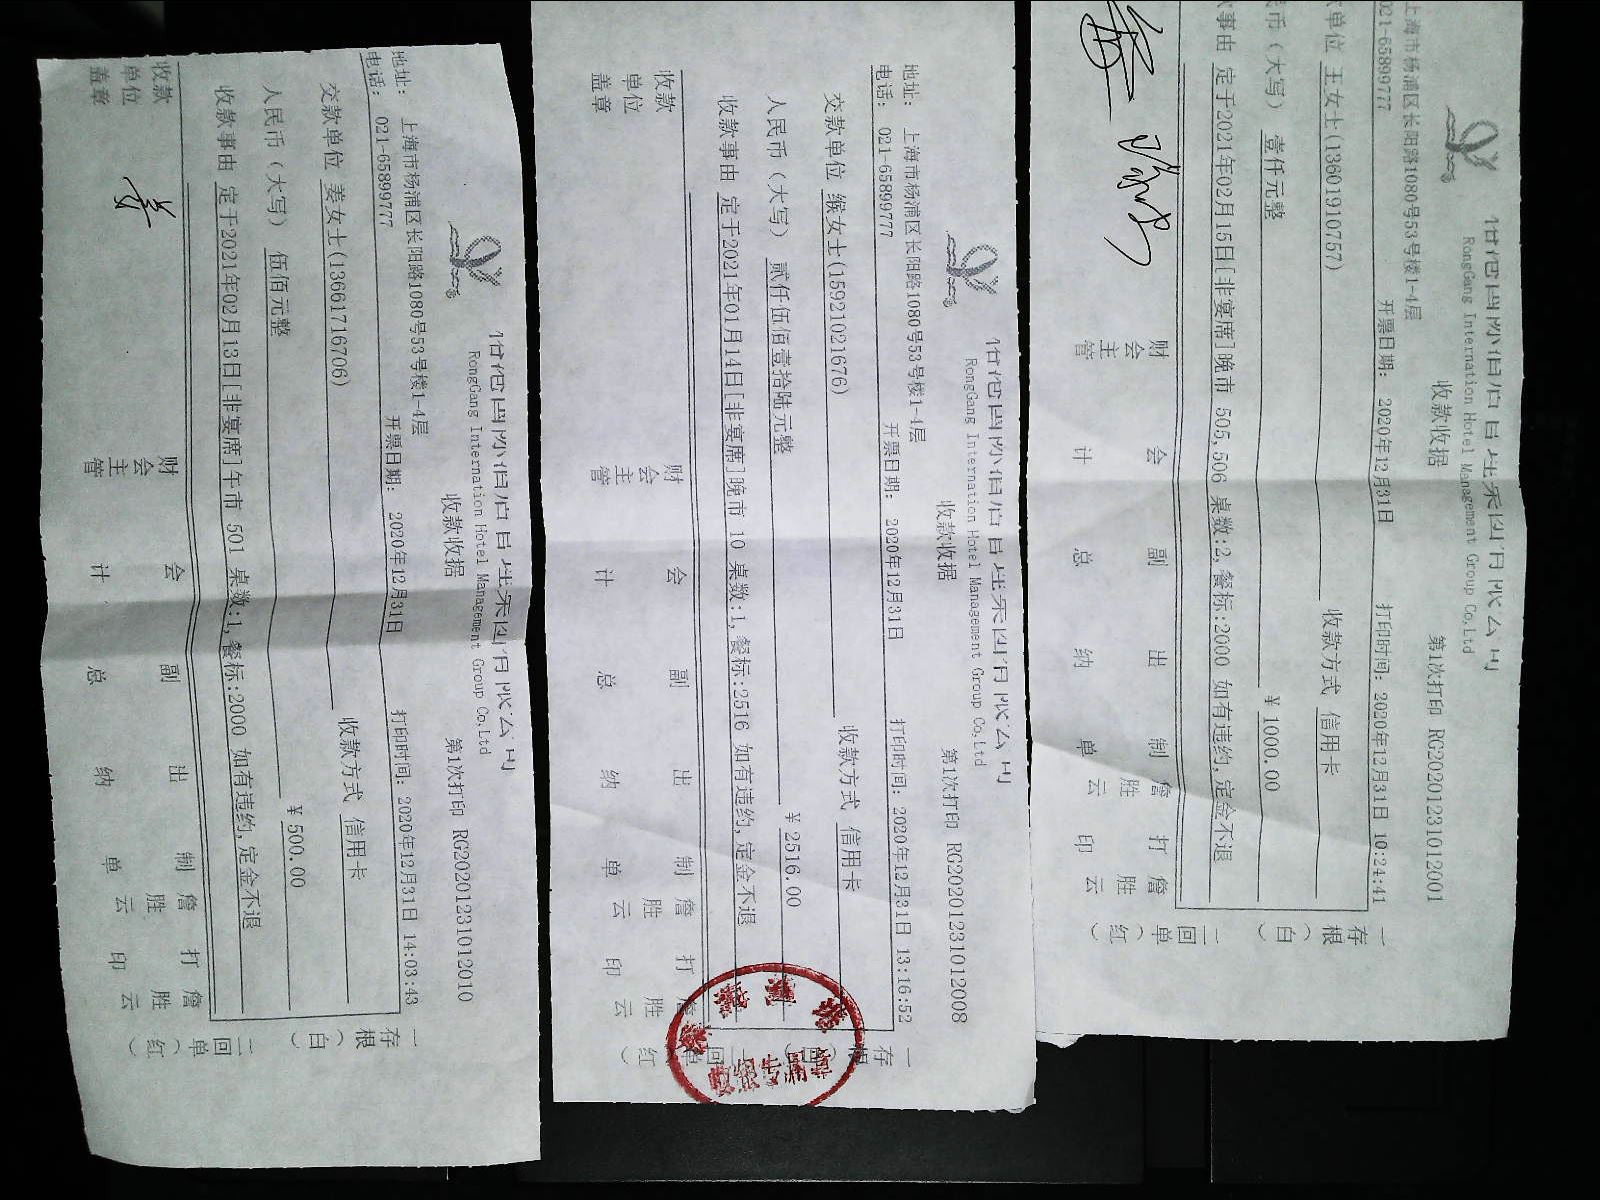 RongGang International Hotel Management Group Co,Ltd
收款收据
第1次打印 RG20201231012010
地址: 上海市杨浦区长阳路1080号53号楼1-4层
电话: 021-65899777
开票日期: 2020年12月31日
打印时间: 2020年12月31日 14:03:43
交款单位 姜女士(13661716706)
收款方式 信用卡
人民币(大写) 伍佰元整
¥500.00
收款事由 定于2021年02月13日[非宴席]午市 501 桌数:1,餐标:2000 如有违约,定金不退
收款单位盖章
财会主管
会计
副总
出纳
制单 詹胜云
打印 詹胜云
一存根(白)
二回单(红)
RongGang International Hotel Management Group Co,Ltd
收款收据
第1次打印 RG20201231012008
地址: 上海市杨浦区长阳路1080号53号楼1-4层
电话: 021-65899777
开票日期: 2020年12月31日
打印时间: 2020年12月31日 13:16:52
交款单位 缑女士(15921021676)
收款方式 信用卡
人民币(大写) 贰仟伍佰壹拾陆元整
¥2516.00
收款事由 定于2021年01月14日[非宴席]晚市 10 桌数:1,餐标:2516 如有违约,定金不退
收款单位盖章
财会主管
会计
副总
出纳
制单 詹胜云
打印 詹胜云
一存根
二回单(红)
RongGang International Hotel Management Group Co,Ltd
收款收据
第1次打印 RG20201231012001
上海市杨浦区长阳路1080号53号楼1-4层
021-65899777
开票日期: 2020年12月31日
打印时间: 2020年12月31日 10:24:41
单位 王女士(13601910757)
收款方式 信用卡
币(大写) 壹仟元整
¥1000.00
事由 定于2021年02月15日[非宴席]晚市 505,506 桌数:2,餐标:2000 如有违约,定金不退
财会主管
会计
副总
出纳
制单 詹胜云
打印 詹胜云
一存根(白)
二回单(红)